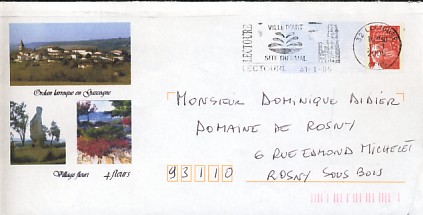 LECTOURE
VILLE D'ART
SITE THERMAL
LECTOURE
Ordan larroque en Gascogne
Village fleuri 4 fleurs
MONSIEUR DOMINIQUE DIDIER
DOMAINE DE ROSNY
6 RUE EDMOND MICHELET
93110 ROSNY SOUS BOIS